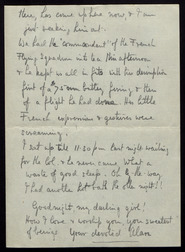 Here, has come up here now, & I am
just
him out.
We had the 'commandant' of the French
Flying Squadron into tea this afternoon
& he kept us all in fits with his description
first of a 75 mm battery firing, & then
of a flight he had done. His little
French expressions & gestures were
screaming.
I sat up till 11.30 p.m. last night waiting
for the Col. & he never came. What a
waste of good sleep. Oh by the way
I had another hot bath the other night!!
Goodnight my darling girl!
How I love & worship you, you sweetest
of beings. Your devoted Alan